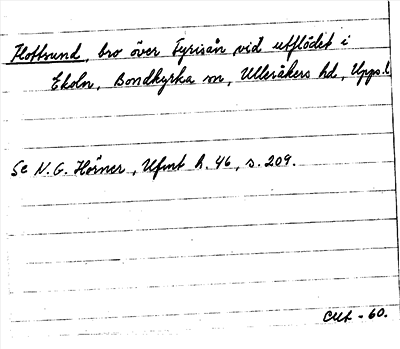 Flottsund, bro över Fyrisån vid utflödet i
Ekoln, Bondkyrka sn, Ulleråkers hd, Upps.l
Se N.G. Hörner, Ufmt h. 46, s. 209.
- 60.